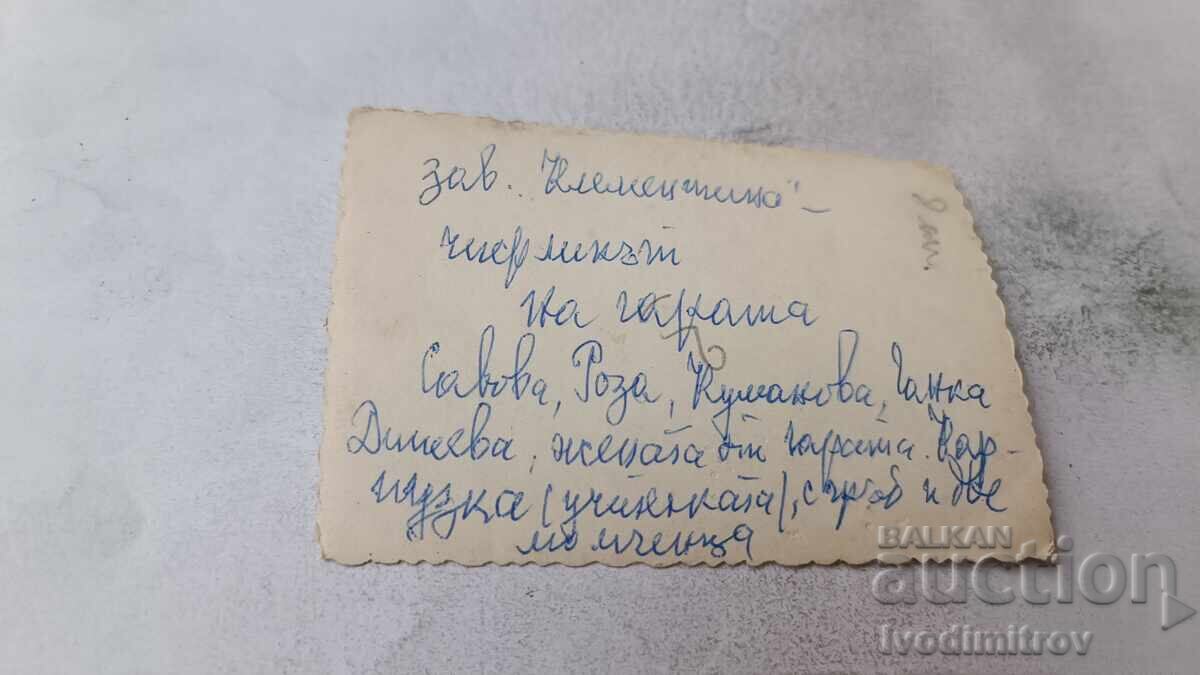 зав. "Клементина" -
чифликът
на гарата
Савова, Роза, Куманова, Ганка
Димева, жената от гарата. Кар-
пузка (учителката), с гръб и две
момченца
8 лт.
BALKAN
auction
Ivodimitrov